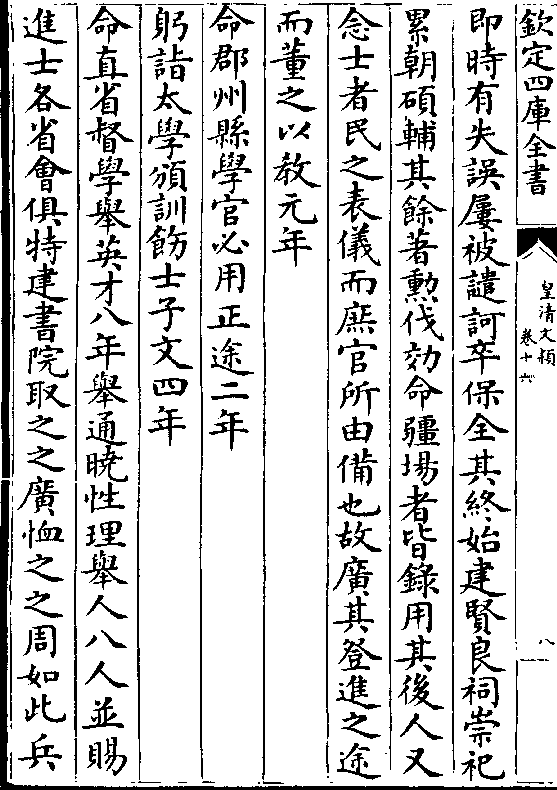 欽定四庫全書
皇清文頴
卷十六
八
即時有失誤屢被譴訶卒保全其終始建賢良祠崇祀
累朝碩輔其餘著勲伐効命疆場者皆錄用其後人又
念士者民之表儀而庶官所由備也故廣其登進之途
而董之以教元年
命郡州縣學官必用正途二年
躬詣太學頒訓飭士子文四年
命直省督學舉英才八年舉通曉性理舉人八人並賜
進士各省會俱特建書院取之之廣恤之之周如此兵